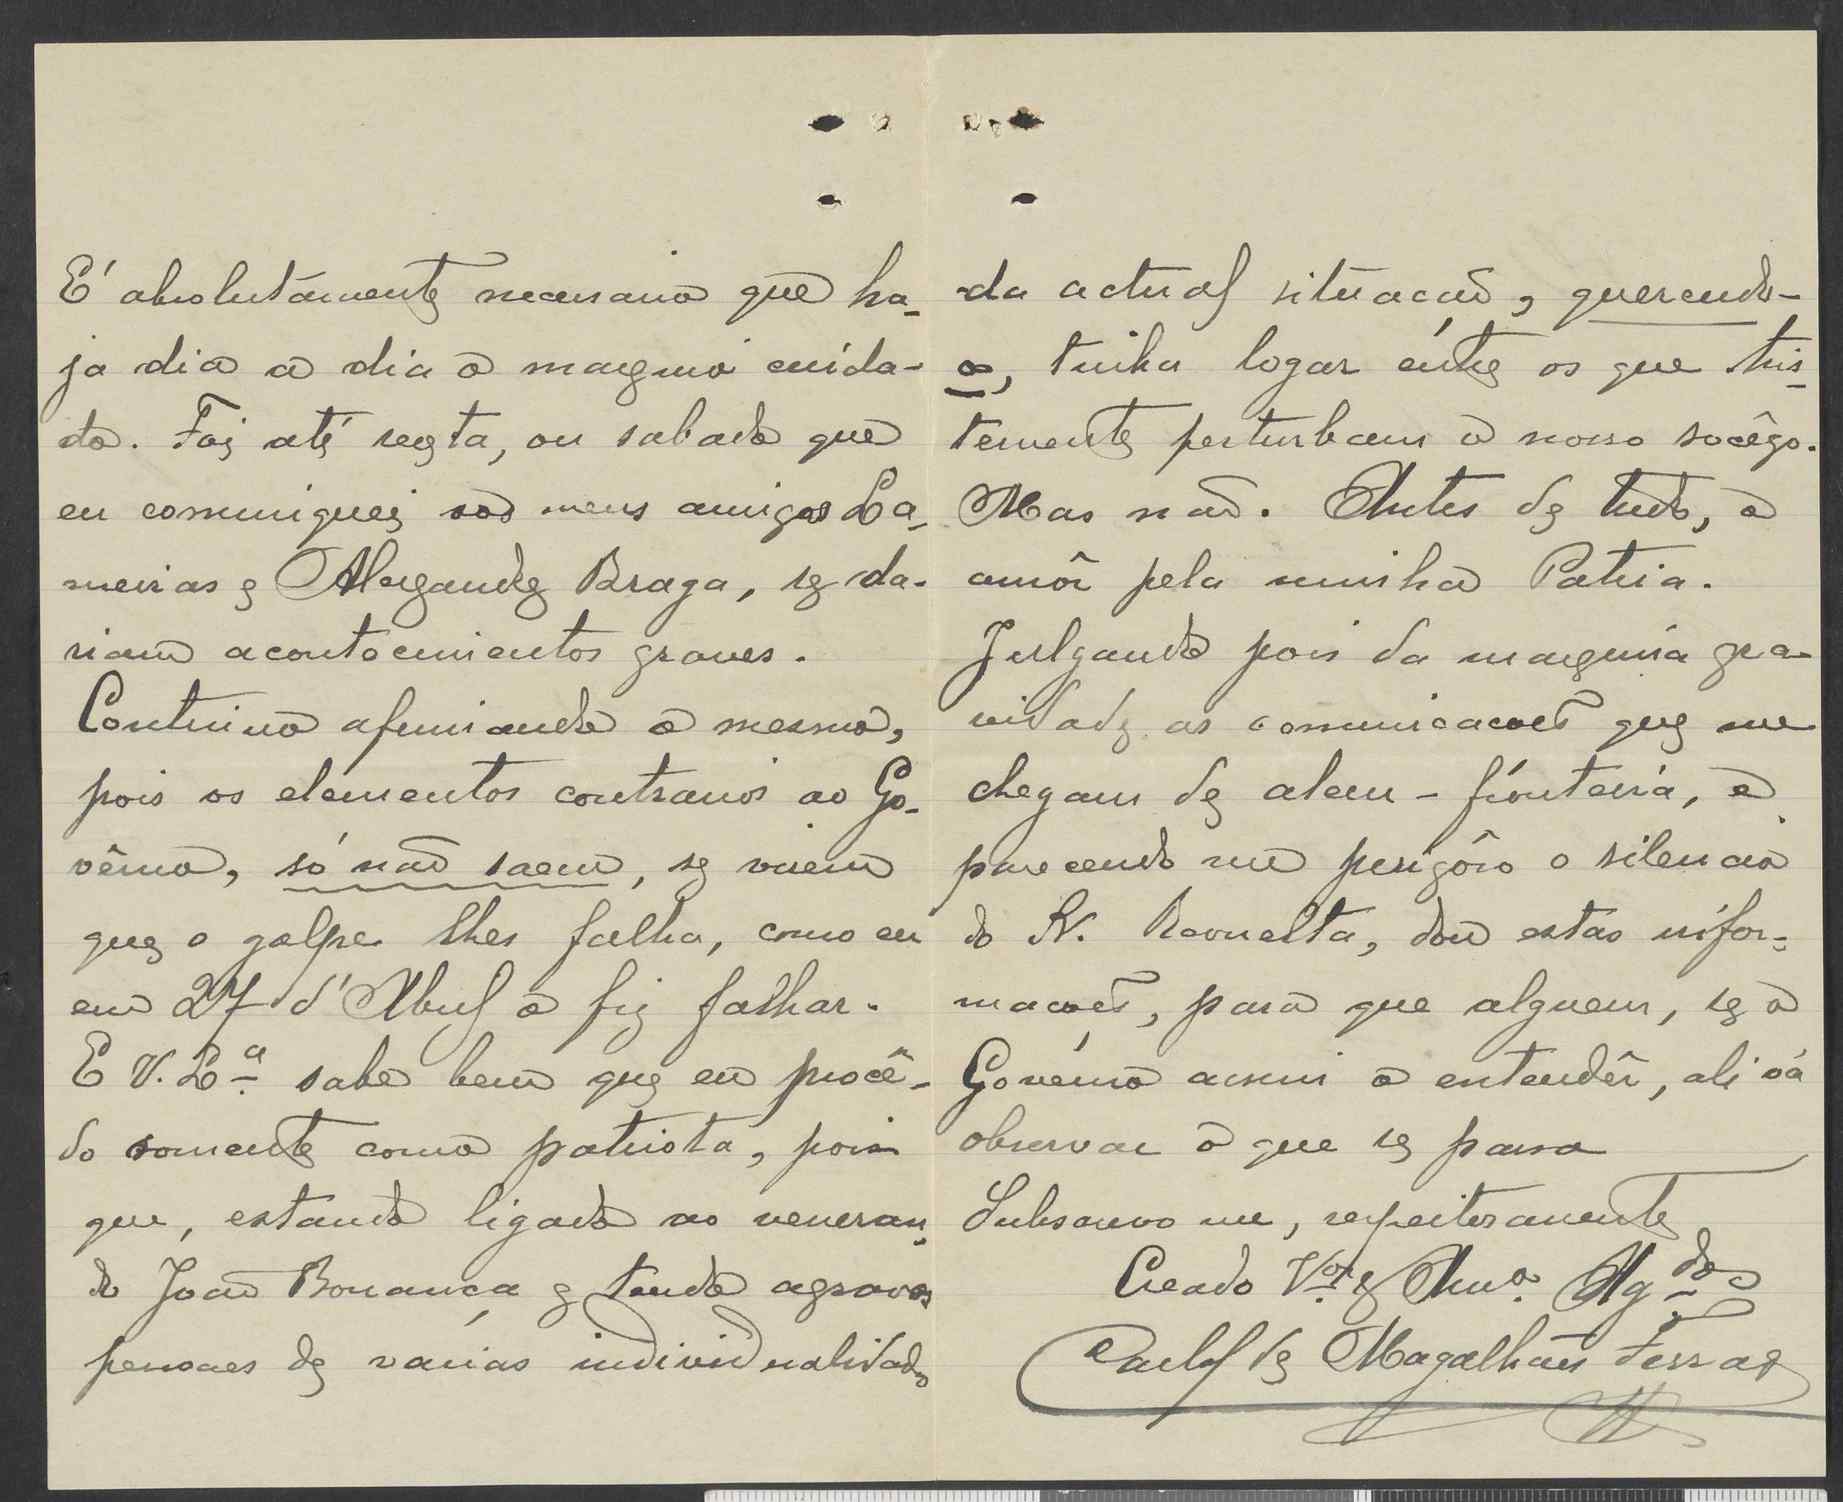 É absolutamente necessario que ha-
ja dia a dia o maximo cuida-
do. Foi até sexta, ou sabado que
eu comuniquei aos meus amigos La-
meiras e Alexandre Braga, se da-
riam acontecimentos graves.
Continuo afirmando o mesmo,
pois os elementos contrarios ao Go-
vêrno, só não saem, se virem
que o golpe lhes falha, como eu
em 27 d'Abril o fiz falhar.
E V. Ex.ª sabe bem que eu procê-
do somente como patriota, pois
que, estando ligado ao veneran-
do João Bonança e tendo agravos
pessoaes de varias individualidades
da actual situação, querendo-
o, tinha logar entre os que tris-
temente perturbam o nosso socêgo.
Mas não. Antes de tudo, o
amôr pela minha Patria.
Julgando pois da maxima gra-
vidade as comunicacoes que me
chegam de alem-fronteira, e
parecendo me perigôso o silencio
do Revuelta, dou estas infor-
mações, para que alguem, se o
Govêrno assim o entendêr, ali vá
observar o que se passa
Subscrevo me, respeitosamente
Creado V.or e Am.o Ag.do
Carlos de Magalhães Ferraz